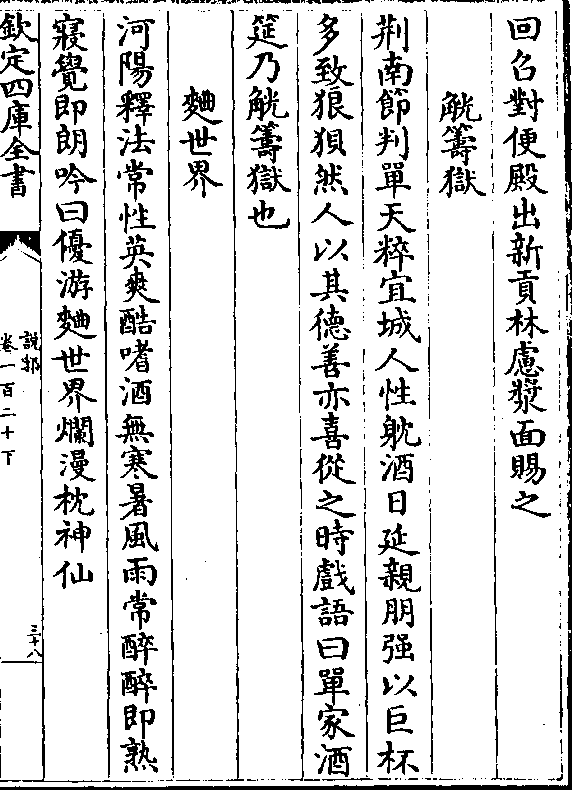 回召對便殿出新貢林慮漿面賜之
觥籌獄
荆南節判單天粹宜城人性躭酒日延親朋强以巨杯
多致狼狽然人以其德善亦喜從之時戲語曰單家酒
筵乃觥籌獄也
麯世界
河陽釋法常性英爽酷嗜酒無寒暑風雨常醉醉即熟
寢覺即朗吟曰優游麯世界爛漫枕神仙
欽定四庫全書
說郛
卷一百二十下
三十八